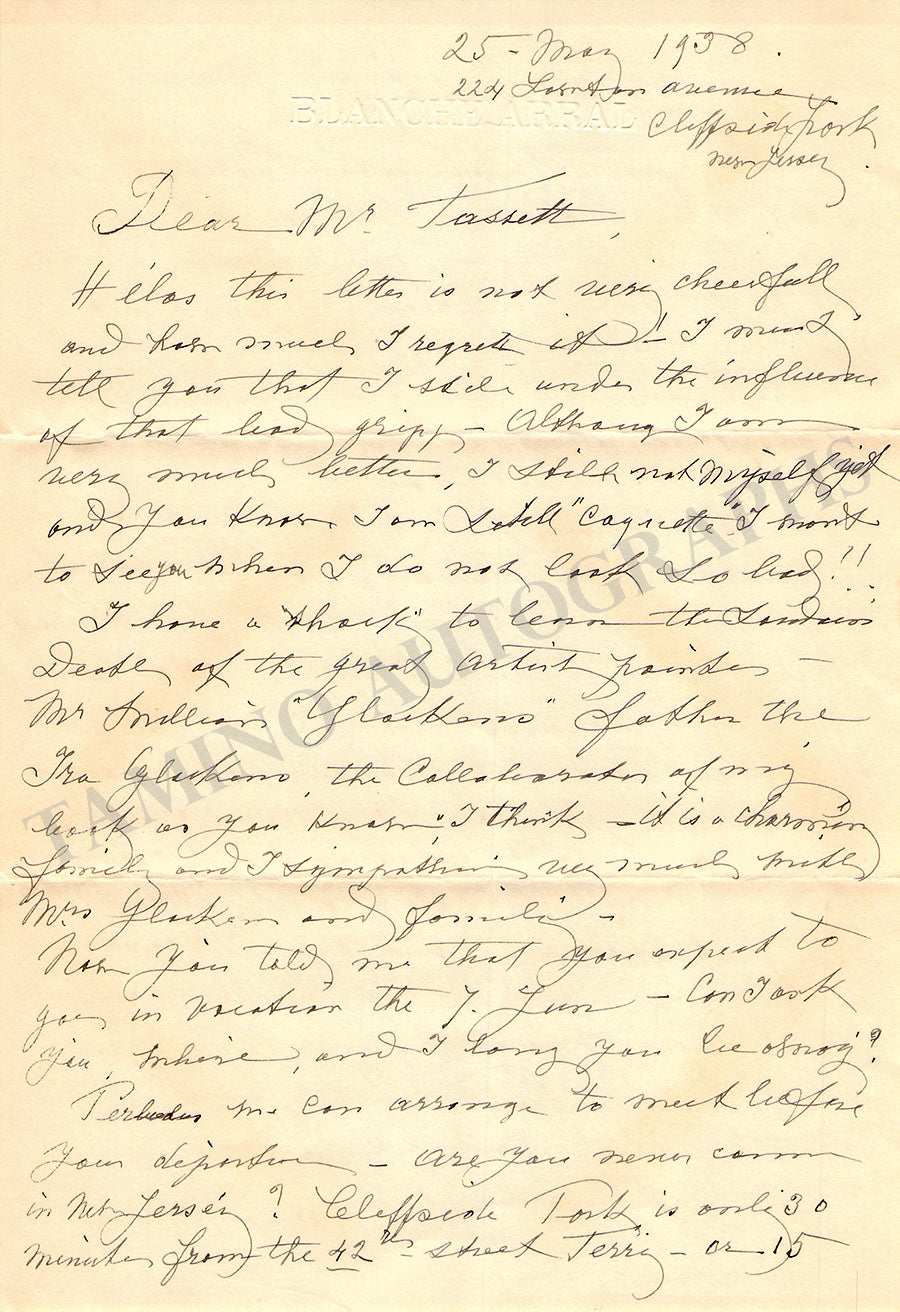 25 - May 1938.
224 avenue
BLANCHE ARRAL
Cliffside Park
New Jersey.
Dear Mr Tassett,
Hélas this letter is not very cheerfull
and how much I regrett it! - I must
tell you that I still under the influence
of that bad gripp - Althoug I am
very much better, I still not Myself yet
and you know I am still "Coquette" I want
to see you when I do not look so bad!!
I have a "shock" to learn the
Death of the great artist painter -
Mr William "Glackens" father the
Ira Glackens, the Collaborator of my
book as you know, I think - it is a charming
family and I sympathise very much with
Mrs Glackens and famili -
Now you told me that you expect to
go in vacation the 7. Jun - Can I ask
you, where, and long you be away?
Perhaps we can arrange to meet before
your departure - are you never comm
in New Jersey? Cliffside Park is onli 30
minutes from the 42nd street Ferry - or 15
TAMINO AUTOGRAPHS